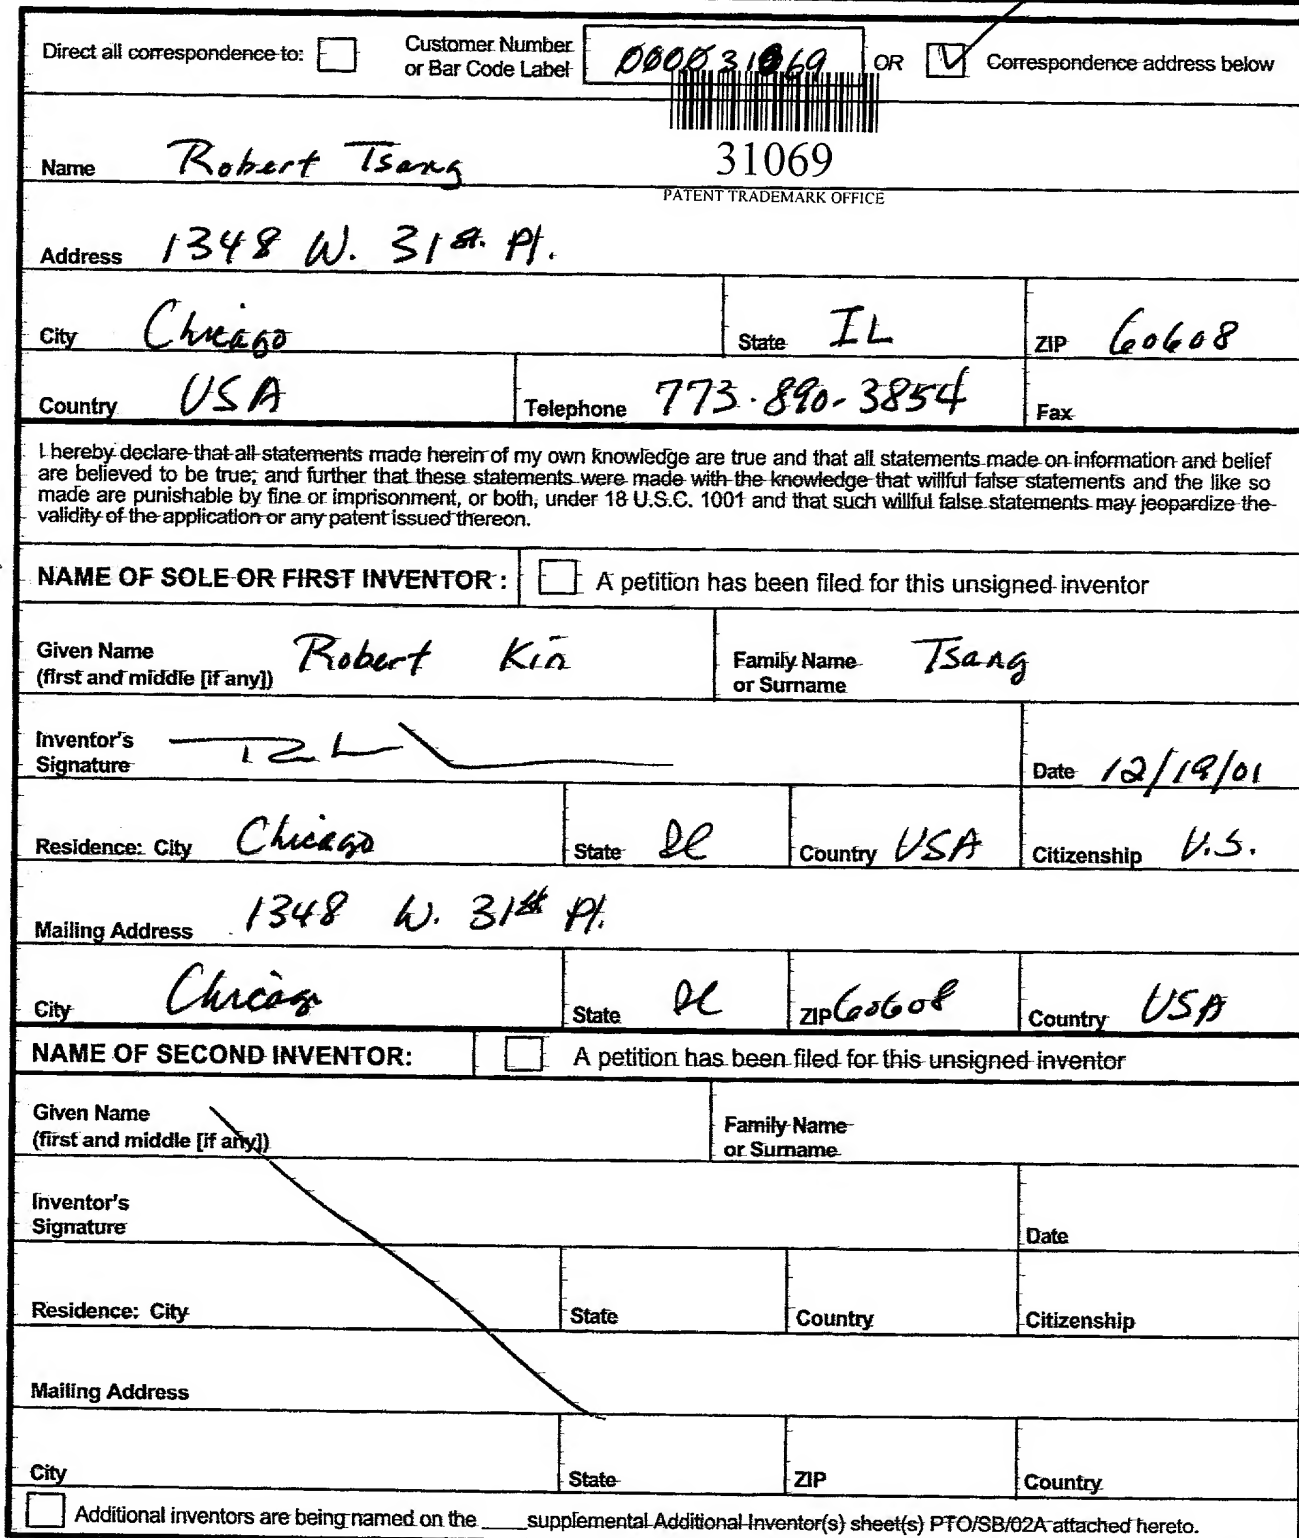 Direct all correspondence to: Customer Number 000031069 OR Correspondence address below
or Bar Code Label
31069
PATENT TRADEMARK OFFICE
Name Robert Tsang
Address 1348 W. 31st. Pl.
City Chicago State IL ZIP 60608
Country USA Telephone 773.890-3854 Fax
I hereby declare that all statements made herein of my own knowledge are true and that all statements made on information and belief
are believed to be true; and further that these statements were made with the knowledge that willful false statements and the like so
made are punishable by fine or imprisonment, or both, under 18 U.S.C. 1001 and that such willful false statements may jeopardize the
validity of the application or any patent issued thereon.
NAME OF SOLE OR FIRST INVENTOR : A petition has been filed for this unsigned inventor
Given Name Robert Kin Family Name Tsang
(first and middle [if any]) or Surname
Inventor's
Signature Date 12/19/01
Residence: City Chicago State Il Country USA Citizenship U.S.
Mailing Address 1348 W. 31st Pl.
City Chicago State Il ZIP 60608 Country USA
NAME OF SECOND INVENTOR: A petition has been filed for this unsigned inventor
Given Name Family Name
(first and middle [if any]) or Surname
Inventor's
Signature Date
Residence: City State Country Citizenship
Mailing Address
City State ZIP Country
Additional inventors are being named on the ____supplemental Additional Inventor(s) sheet(s) PTO/SB/02A attached hereto.